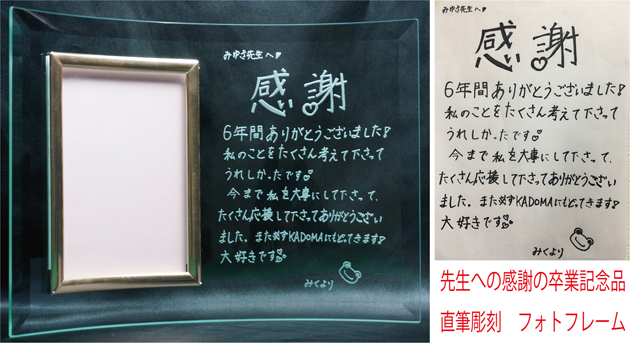 みゆき先生へ
感謝
6年間ありがとうございました!
私のことをたくさん考えて下さって
うれしかったです
今まで私を大事にして下さって、
たくさん応援して下さってありがとうござい
ました。また必ずKADOMAにもどってきます!
大好きです
みくより
みゆき先生へ
感謝
6年間ありがとうございました!
私のことをたくさん考えて下さって
うれしかったです
今まで私を大事にして下さって、
たくさん応援して下さってありがとうござい
ました。また必ずKADOMAにもどってきます!
大好きです
みくより
先生への感謝の卒業記念品
直筆彫刻 フォトフレーム